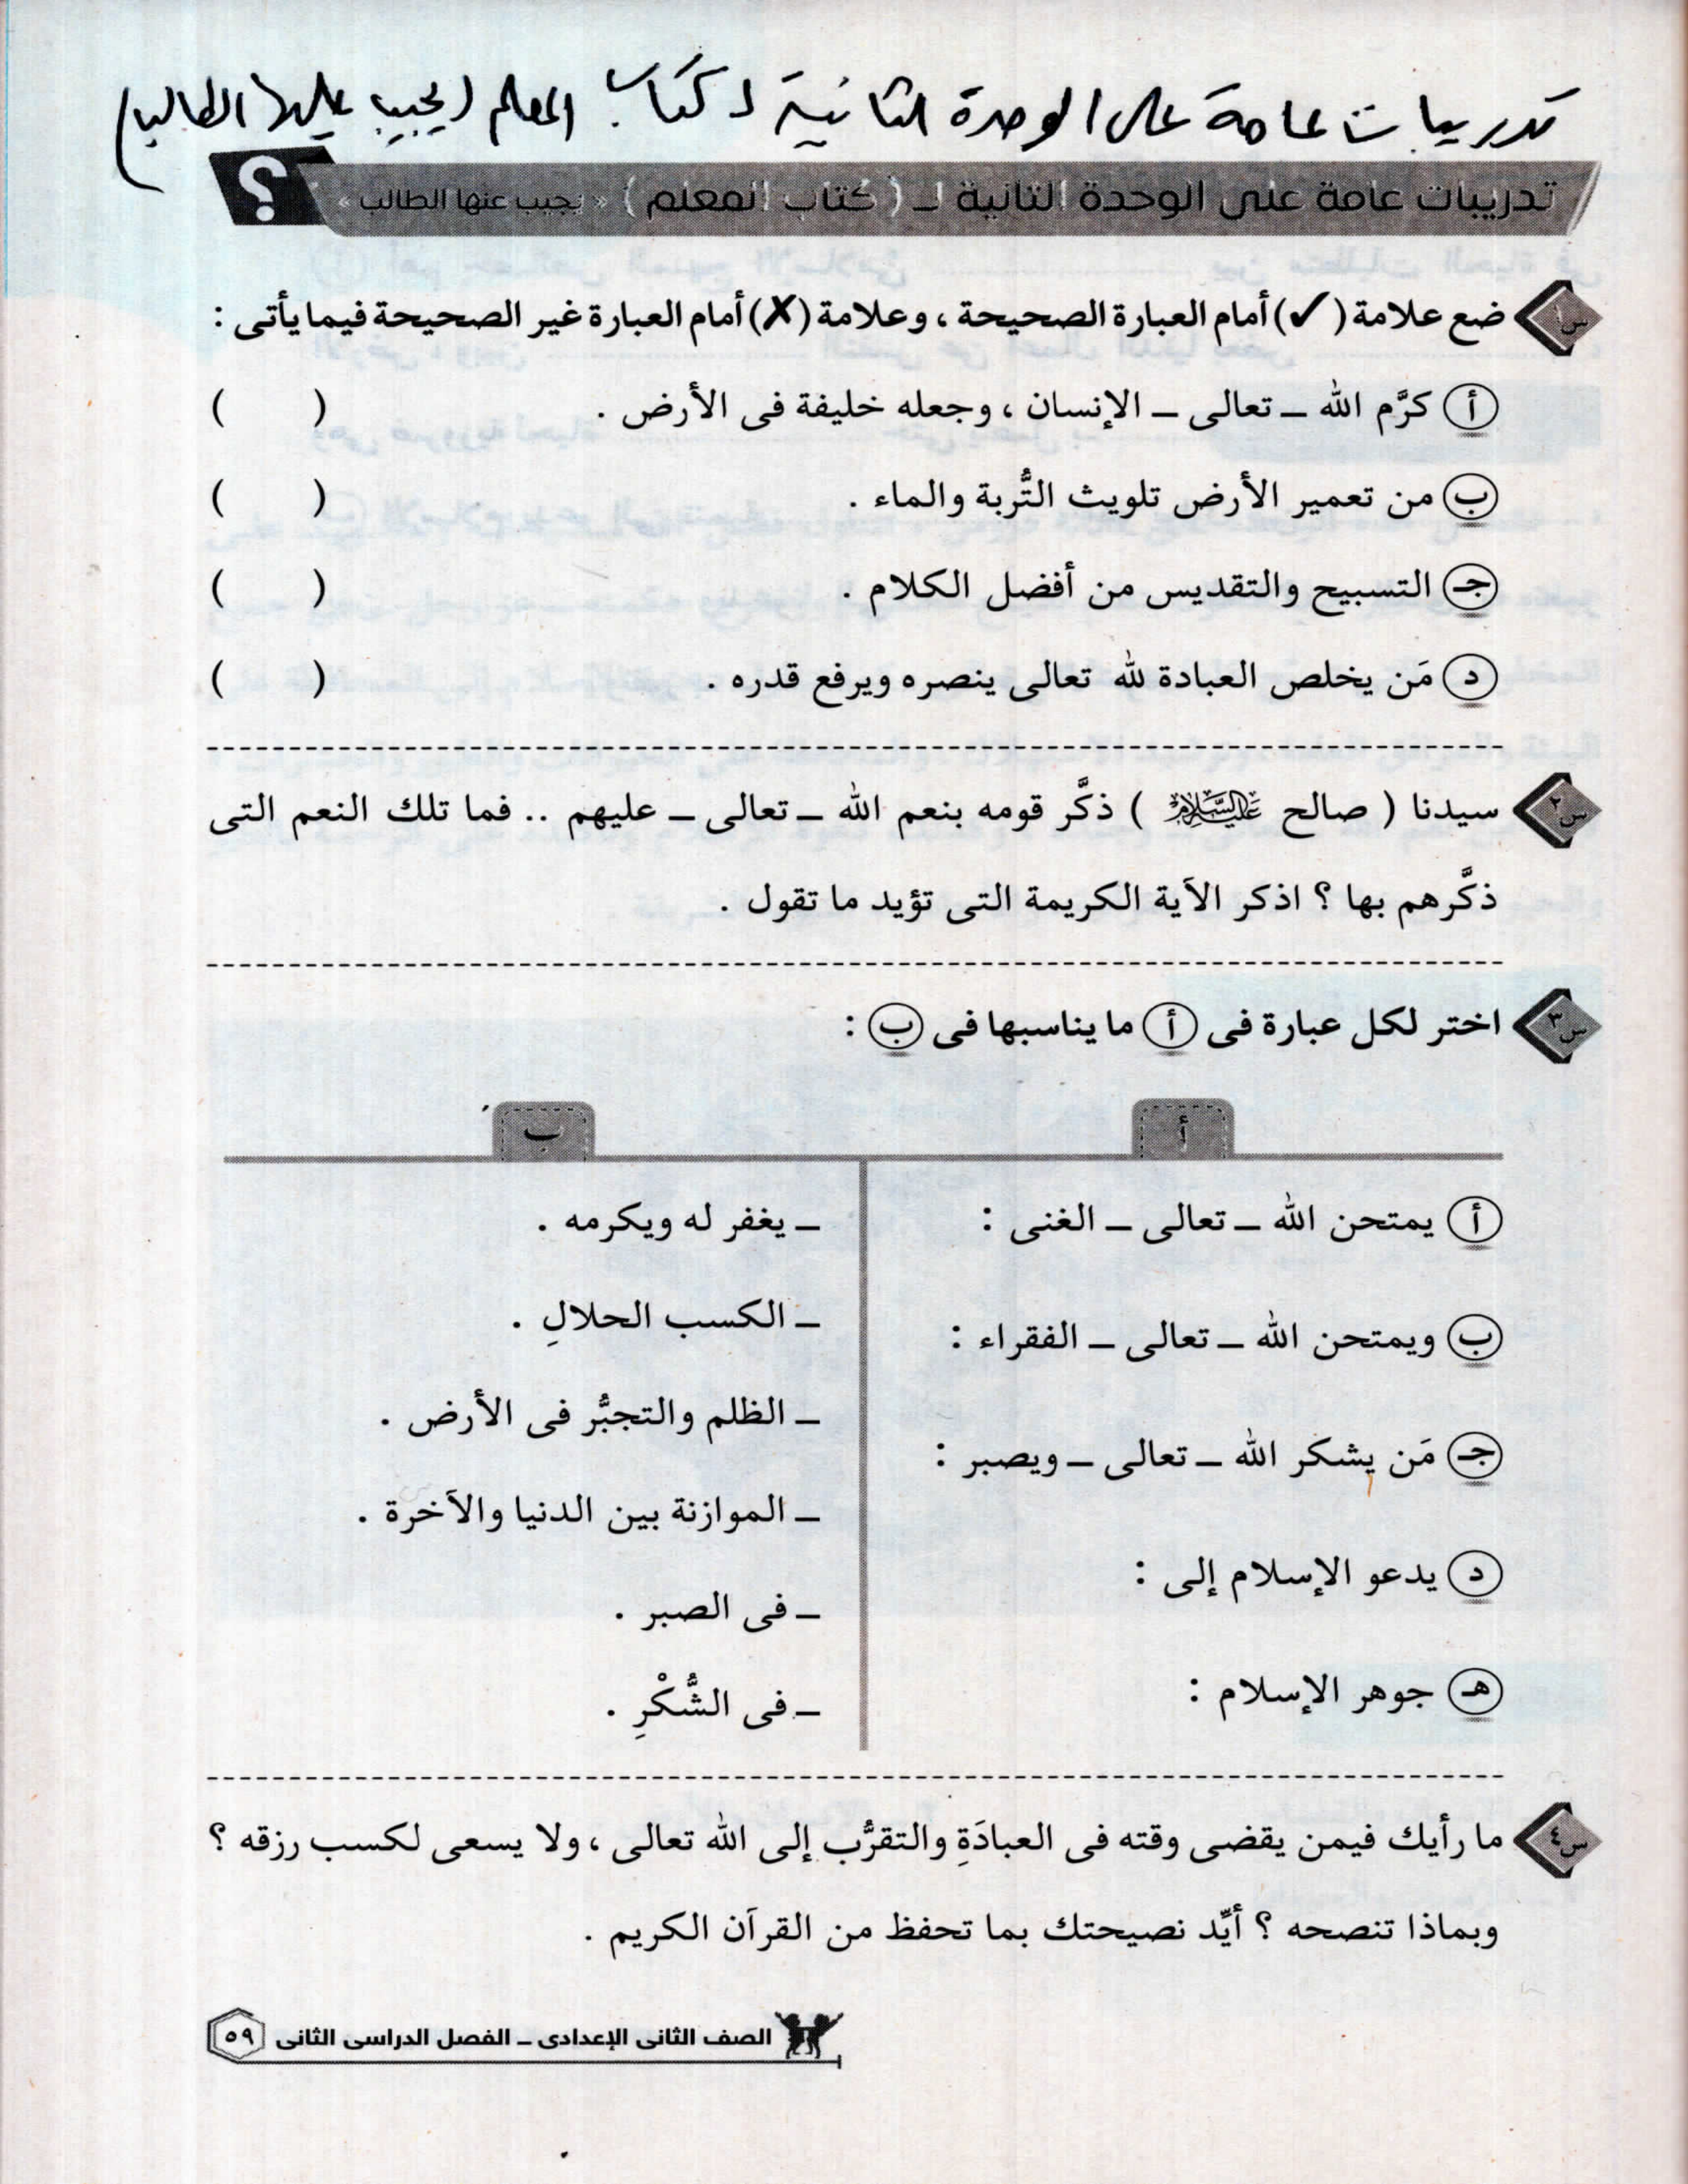 تدريبات عامة على الوحدة الثانية لـ كتاب المعلم (يجيب عليها الطالب)
تدريبات عامة على الوحدة الثانية لـ ( كتاب المعلم ) « يجيب عنها الطالب » ؟
س١ ضع علامة (✓) أمام العبارة الصحيحة ، وعلامة (✗) أمام العبارة غير الصحيحة فيما يأتى :
أ كرَّم الله ـ تعالى ـ الإنسان ، وجعله خليفة فى الأرض . ( )
ب من تعمير الأرض تلويث التُّربة والماء . ( )
جـ التسبيح والتقديس من أفضل الكلام . ( )
د مَن يخلص العبادة لله تعالى ينصره ويرفع قدره . ( )
س٢ سيدنا ( صالح عليه السلام ) ذكَّر قومه بنعم الله ـ تعالى ـ عليهم .. فما تلك النعم التى
ذكَّرهم بها ؟ اذكر الآية الكريمة التى تؤيد ما تقول .
س٣ اختر لكل عبارة فى أ ما يناسبها فى ب :
أ
ب
أ يمتحن الله ـ تعالى ـ الغنى :
ب ويمتحن الله ـ تعالى ـ الفقراء :
جـ مَن يشكر الله ـ تعالى ـ ويصبر :
د يدعو الإسلام إلى :
هـ جوهر الإسلام :
ـ يغفر له ويكرمه .
ـ الكسب الحلالِ .
ـ الظلم والتجبُّر فى الأرض .
ـ الموازنة بين الدنيا والآخرة .
ـ فى الصبر .
ـ فى الشُّكْرِ .
س٤ ما رأيك فيمن يقضى وقته فى العبادَةِ والتقرُّب إلى الله تعالى ، ولا يسعى لكسب رزقه ؟
وبماذا تنصحه ؟ أيِّد نصيحتك بما تحفظ من القرآن الكريم .
الصف الثانى الإعدادى ـ الفصل الدراسى الثانى ٥٩